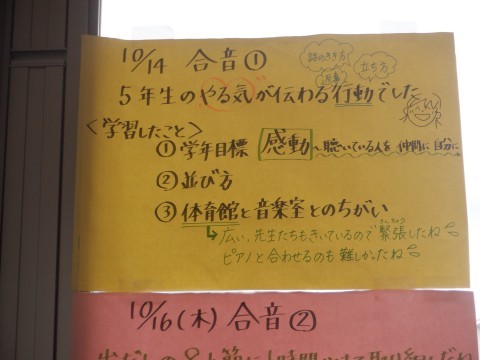 10/14 合音①
話のきき方
返事
立ち方
5年生のやる気が伝わる行動でした
<学習したこと>
①学年目標 感動 〜聴いている人を 仲間に 自分に
②並び方
③体育館と音楽室とのちがい
↳広い、先生たちもきいているので緊張したね
きんちょう
ピアノと合わせるのも難しかったね
10/16(木) 合音②